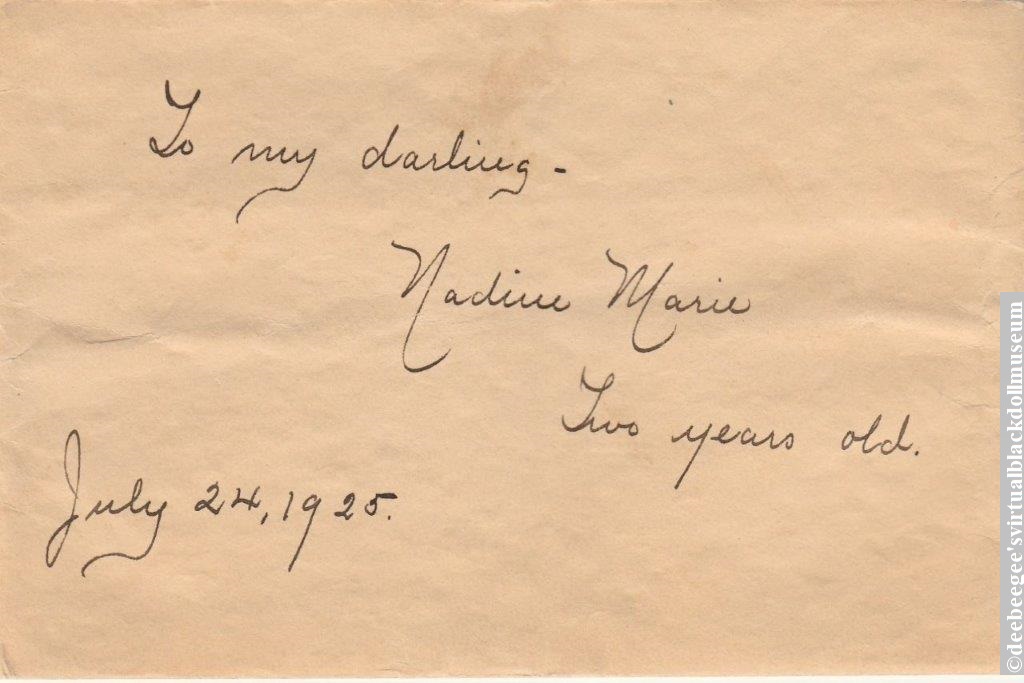 To my darling -
Nadine Marie
Two years old.
July 24, 1925.
©deebeegee'svirtualblackdollmuseum